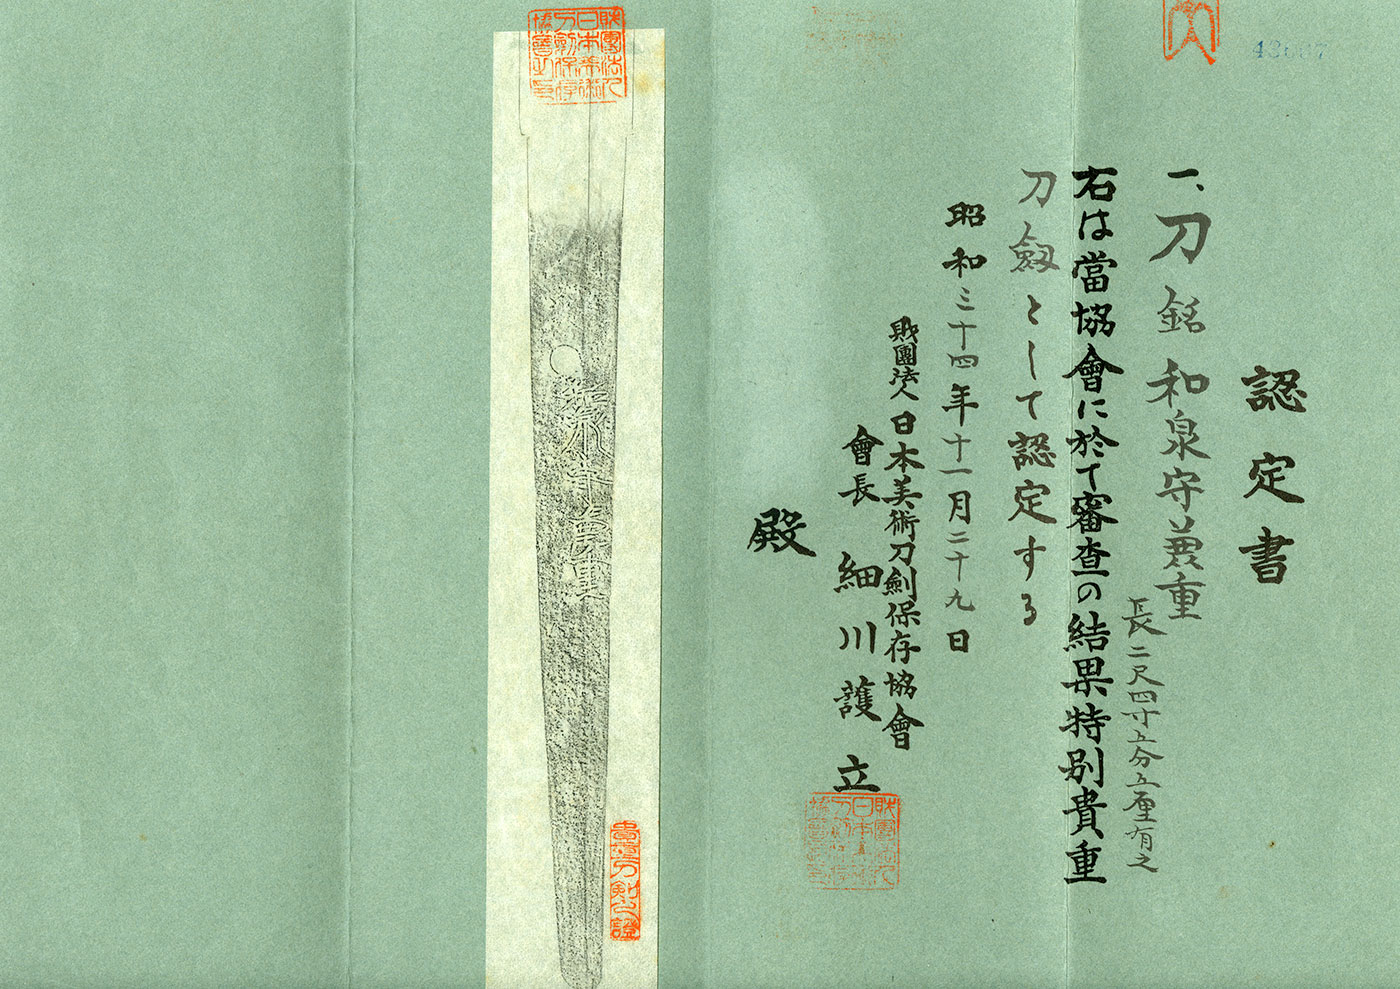 認定書
一、刀 銘 和泉守兼重
長二尺四寸五分五厘有之
右は當協會に於て審査の結果特別貴重
刀劔として認定する
昭和三十四年十一月二十九日
財團法人日本美術刀劍保存協會
會長 細川護立
殿
財團法人
日本美術
刀劍保存
協會之印